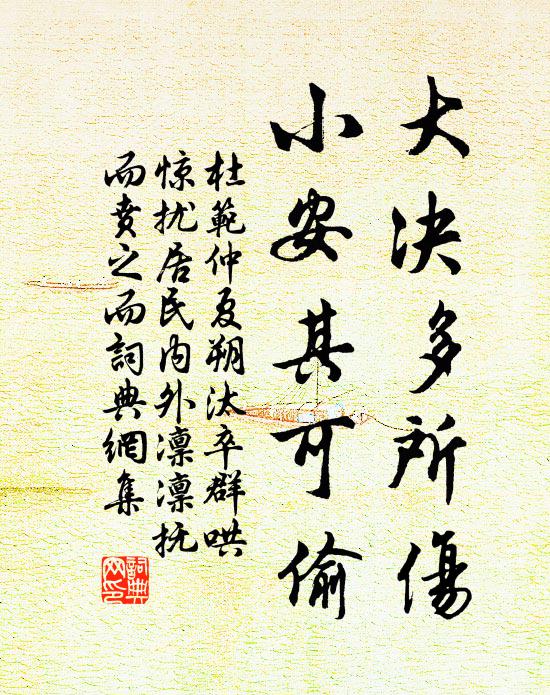 大决多所傷
小安其可偷
杜範仲夏朔汰卒群哄
惊扰居民内外凛凛抚
而賁之而詞典網集
詞典網印